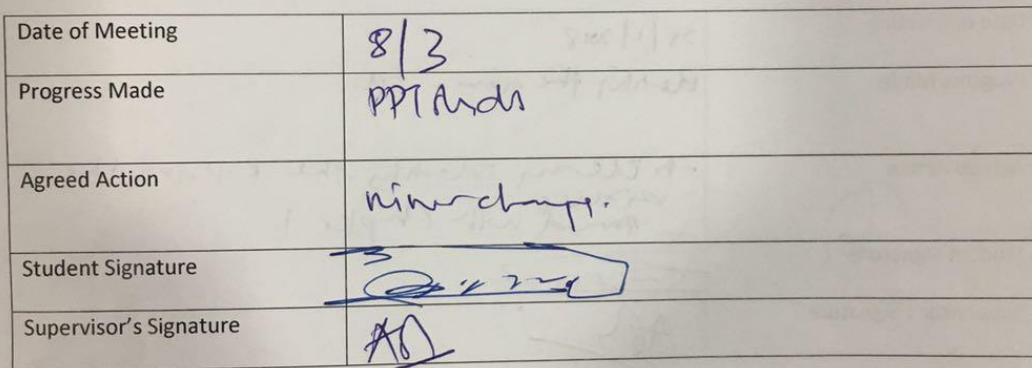 Date of Meeting 8/3
Progress Made PPT
Agreed Action minor changes.
Student Signature
Supervisor's Signature